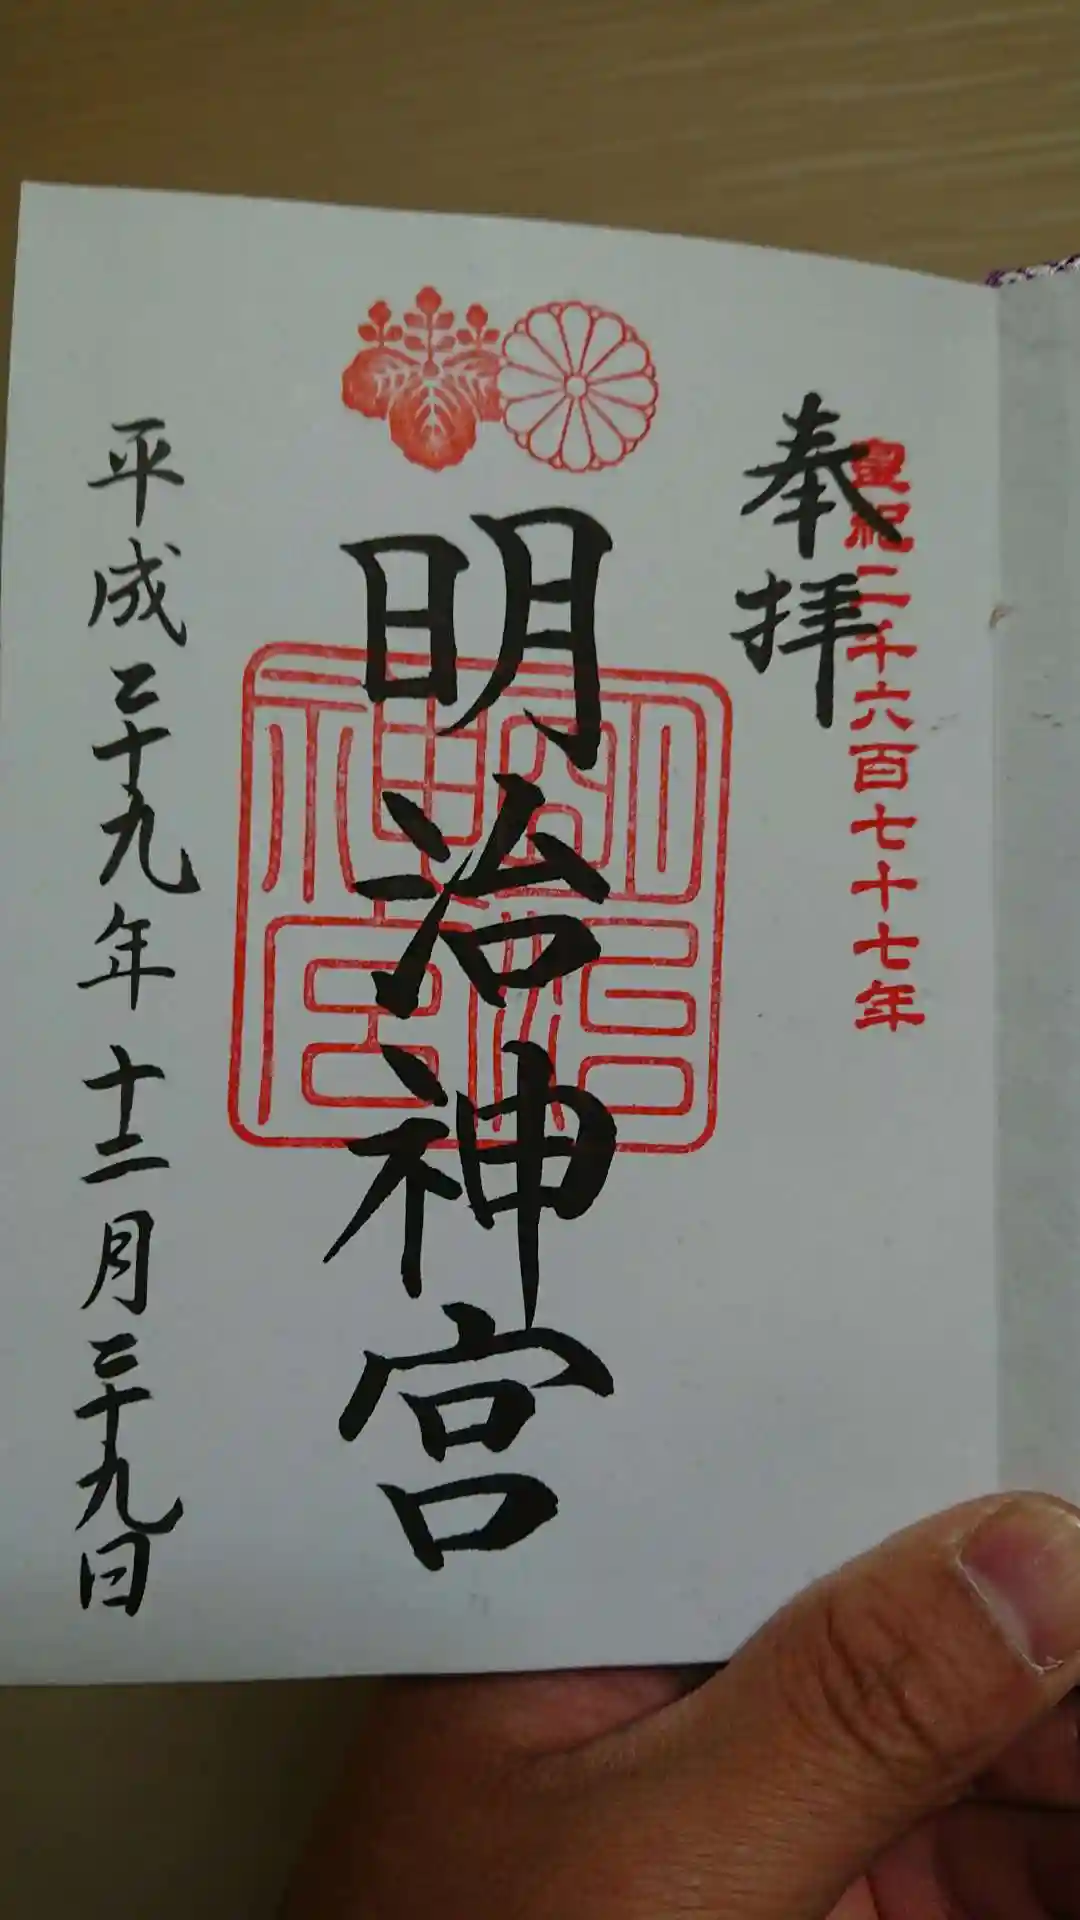 皇紀二千六百七十七年
奉拝
明治神宮
明治神宮
平成二十九年十二月二十九日